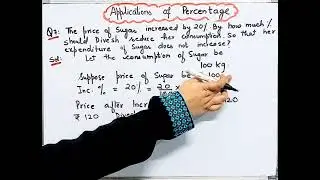 Applications of Percentage
Q3: The price of Sugar increased by 20%. By how much %
should Divesh reduce her consumption. So that her
expenditure of Sugar does not increase?
Sol: Let the consumption of Sugar be
100 kg.
Suppose price of Sugar be 100
Inc. % = 20% = 20/100 ×
Price after Incr 120
₹ 120